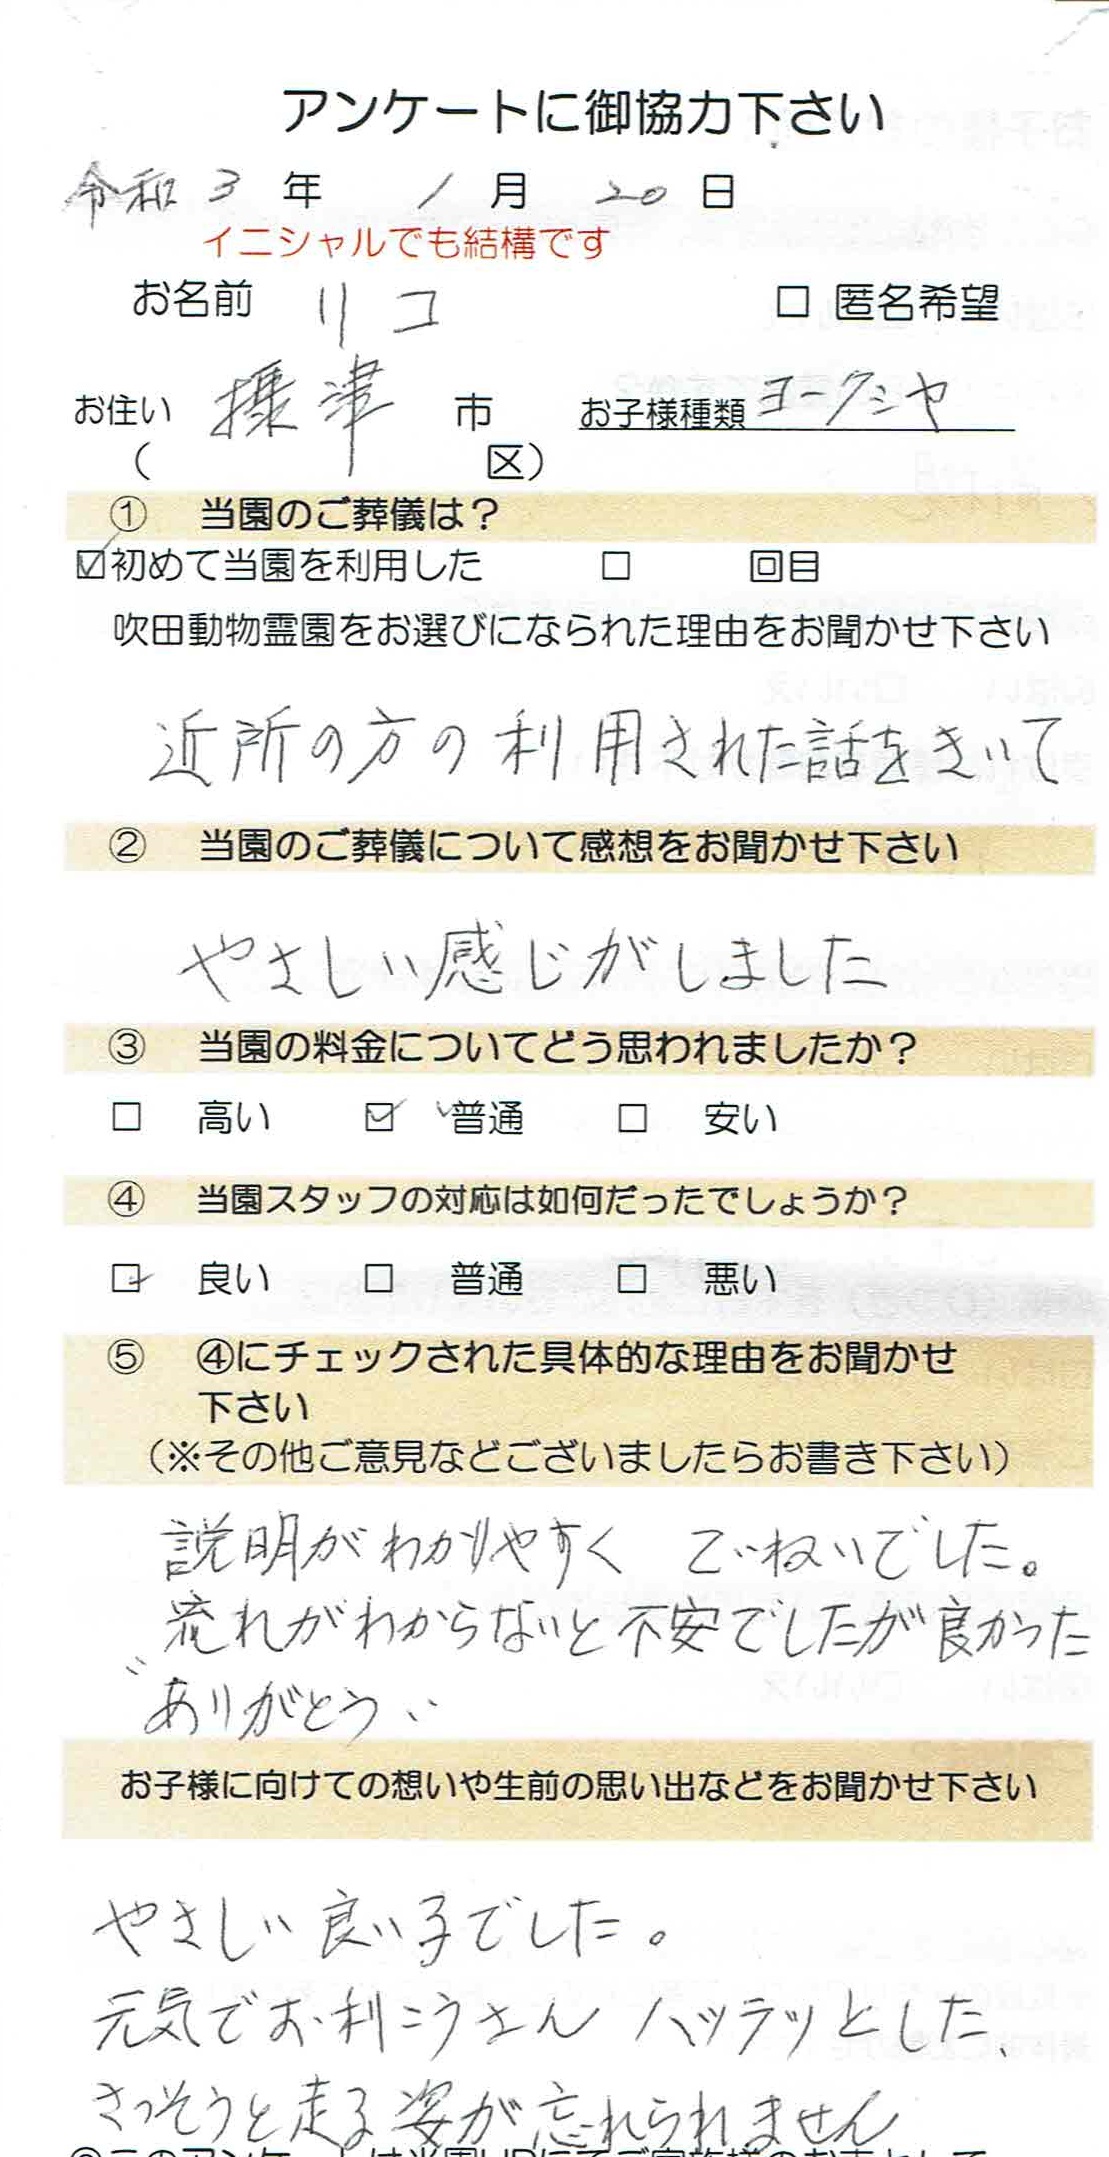 アンケートに御協力下さい
令和 3 年 1 月 20 日
イニシャルでも結構です
お名前 リコ □ 匿名希望
お住い 摂津 市 お子様種類 ヨークシヤ
( 区)
① 当園のご葬儀は？
☑初めて当園を利用した □ 回目
吹田動物霊園をお選びになられた理由をお聞かせ下さい
近所の方の利用された話をきいて
② 当園のご葬儀について感想をお聞かせ下さい
やさしい感じがしました
③ 当園の料金についてどう思われましたか？
□ 高い ☑ 普通 □ 安い
④ 当園スタッフの対応は如何だったでしょうか？
☑ 良い □ 普通 □ 悪い
⑤ ④にチェックされた具体的な理由をお聞かせ
下さい
（※その他ご意見などございましたらお書き下さい）
説明がわかりやすく ていねいでした。
流れがわからないと不安でしたが良かった
〝ありがとう〟
お子様に向けての想いや生前の思い出などをお聞かせ下さい
やさしい良い子でした。
元気でお利こうさん ハツラツとした、
さっそうと走る姿が忘れられません